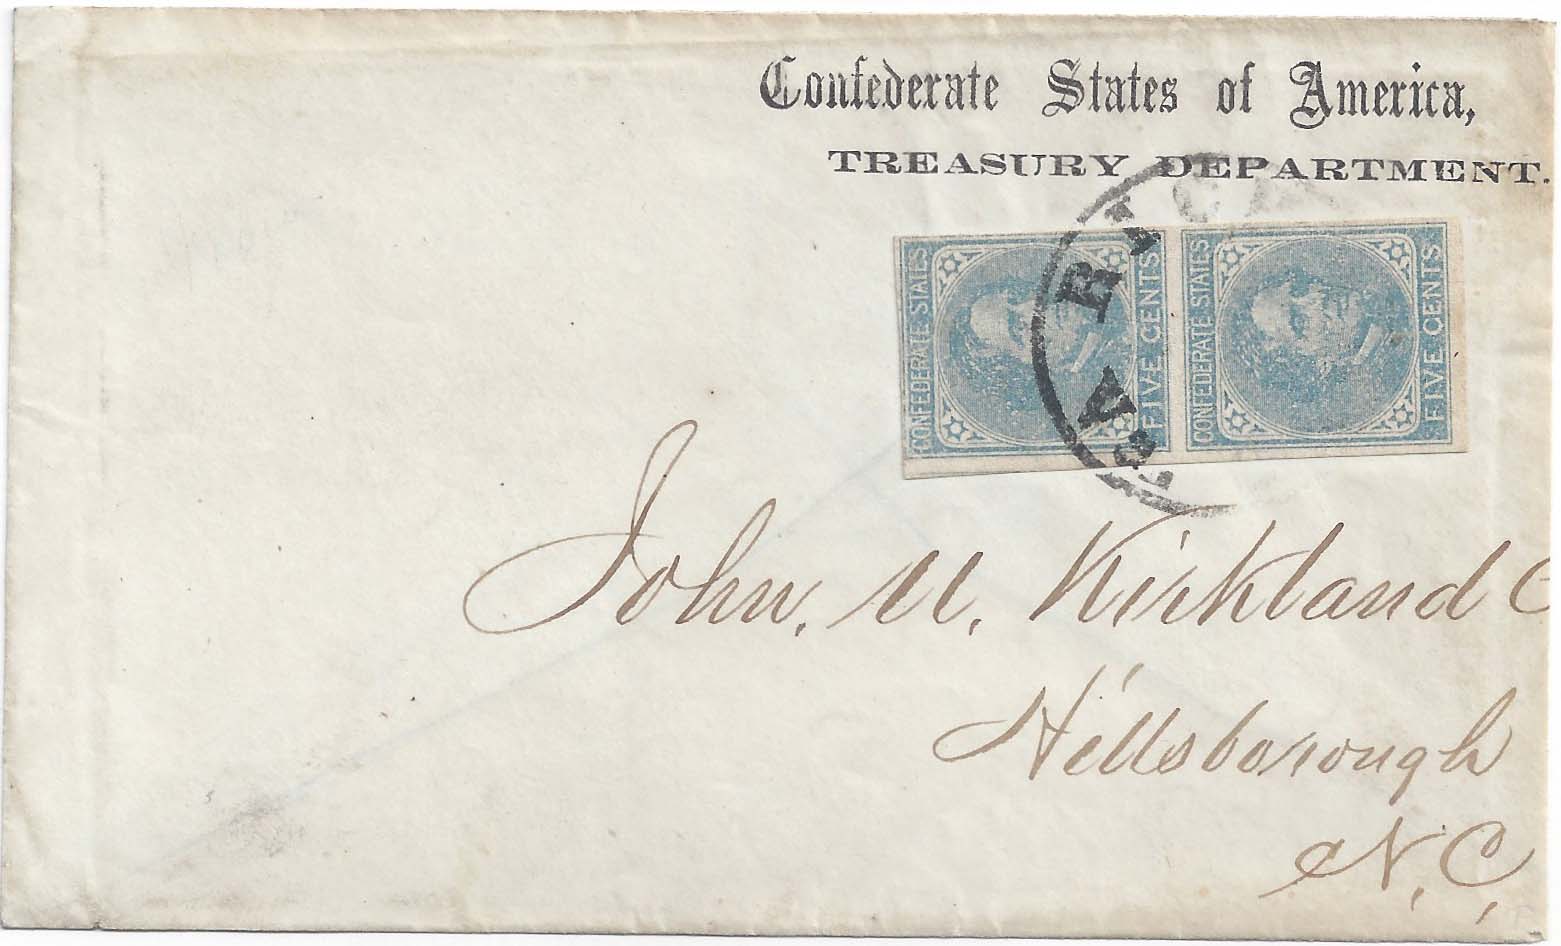 Confederate States of America,
TREASURY DEPARTMENT.
CONFEDERATE STATES
FIVE CENTS
CONFEDERATE STATES
FIVE CENTS
John. U. Kirkland
Hillsborough
N. C.